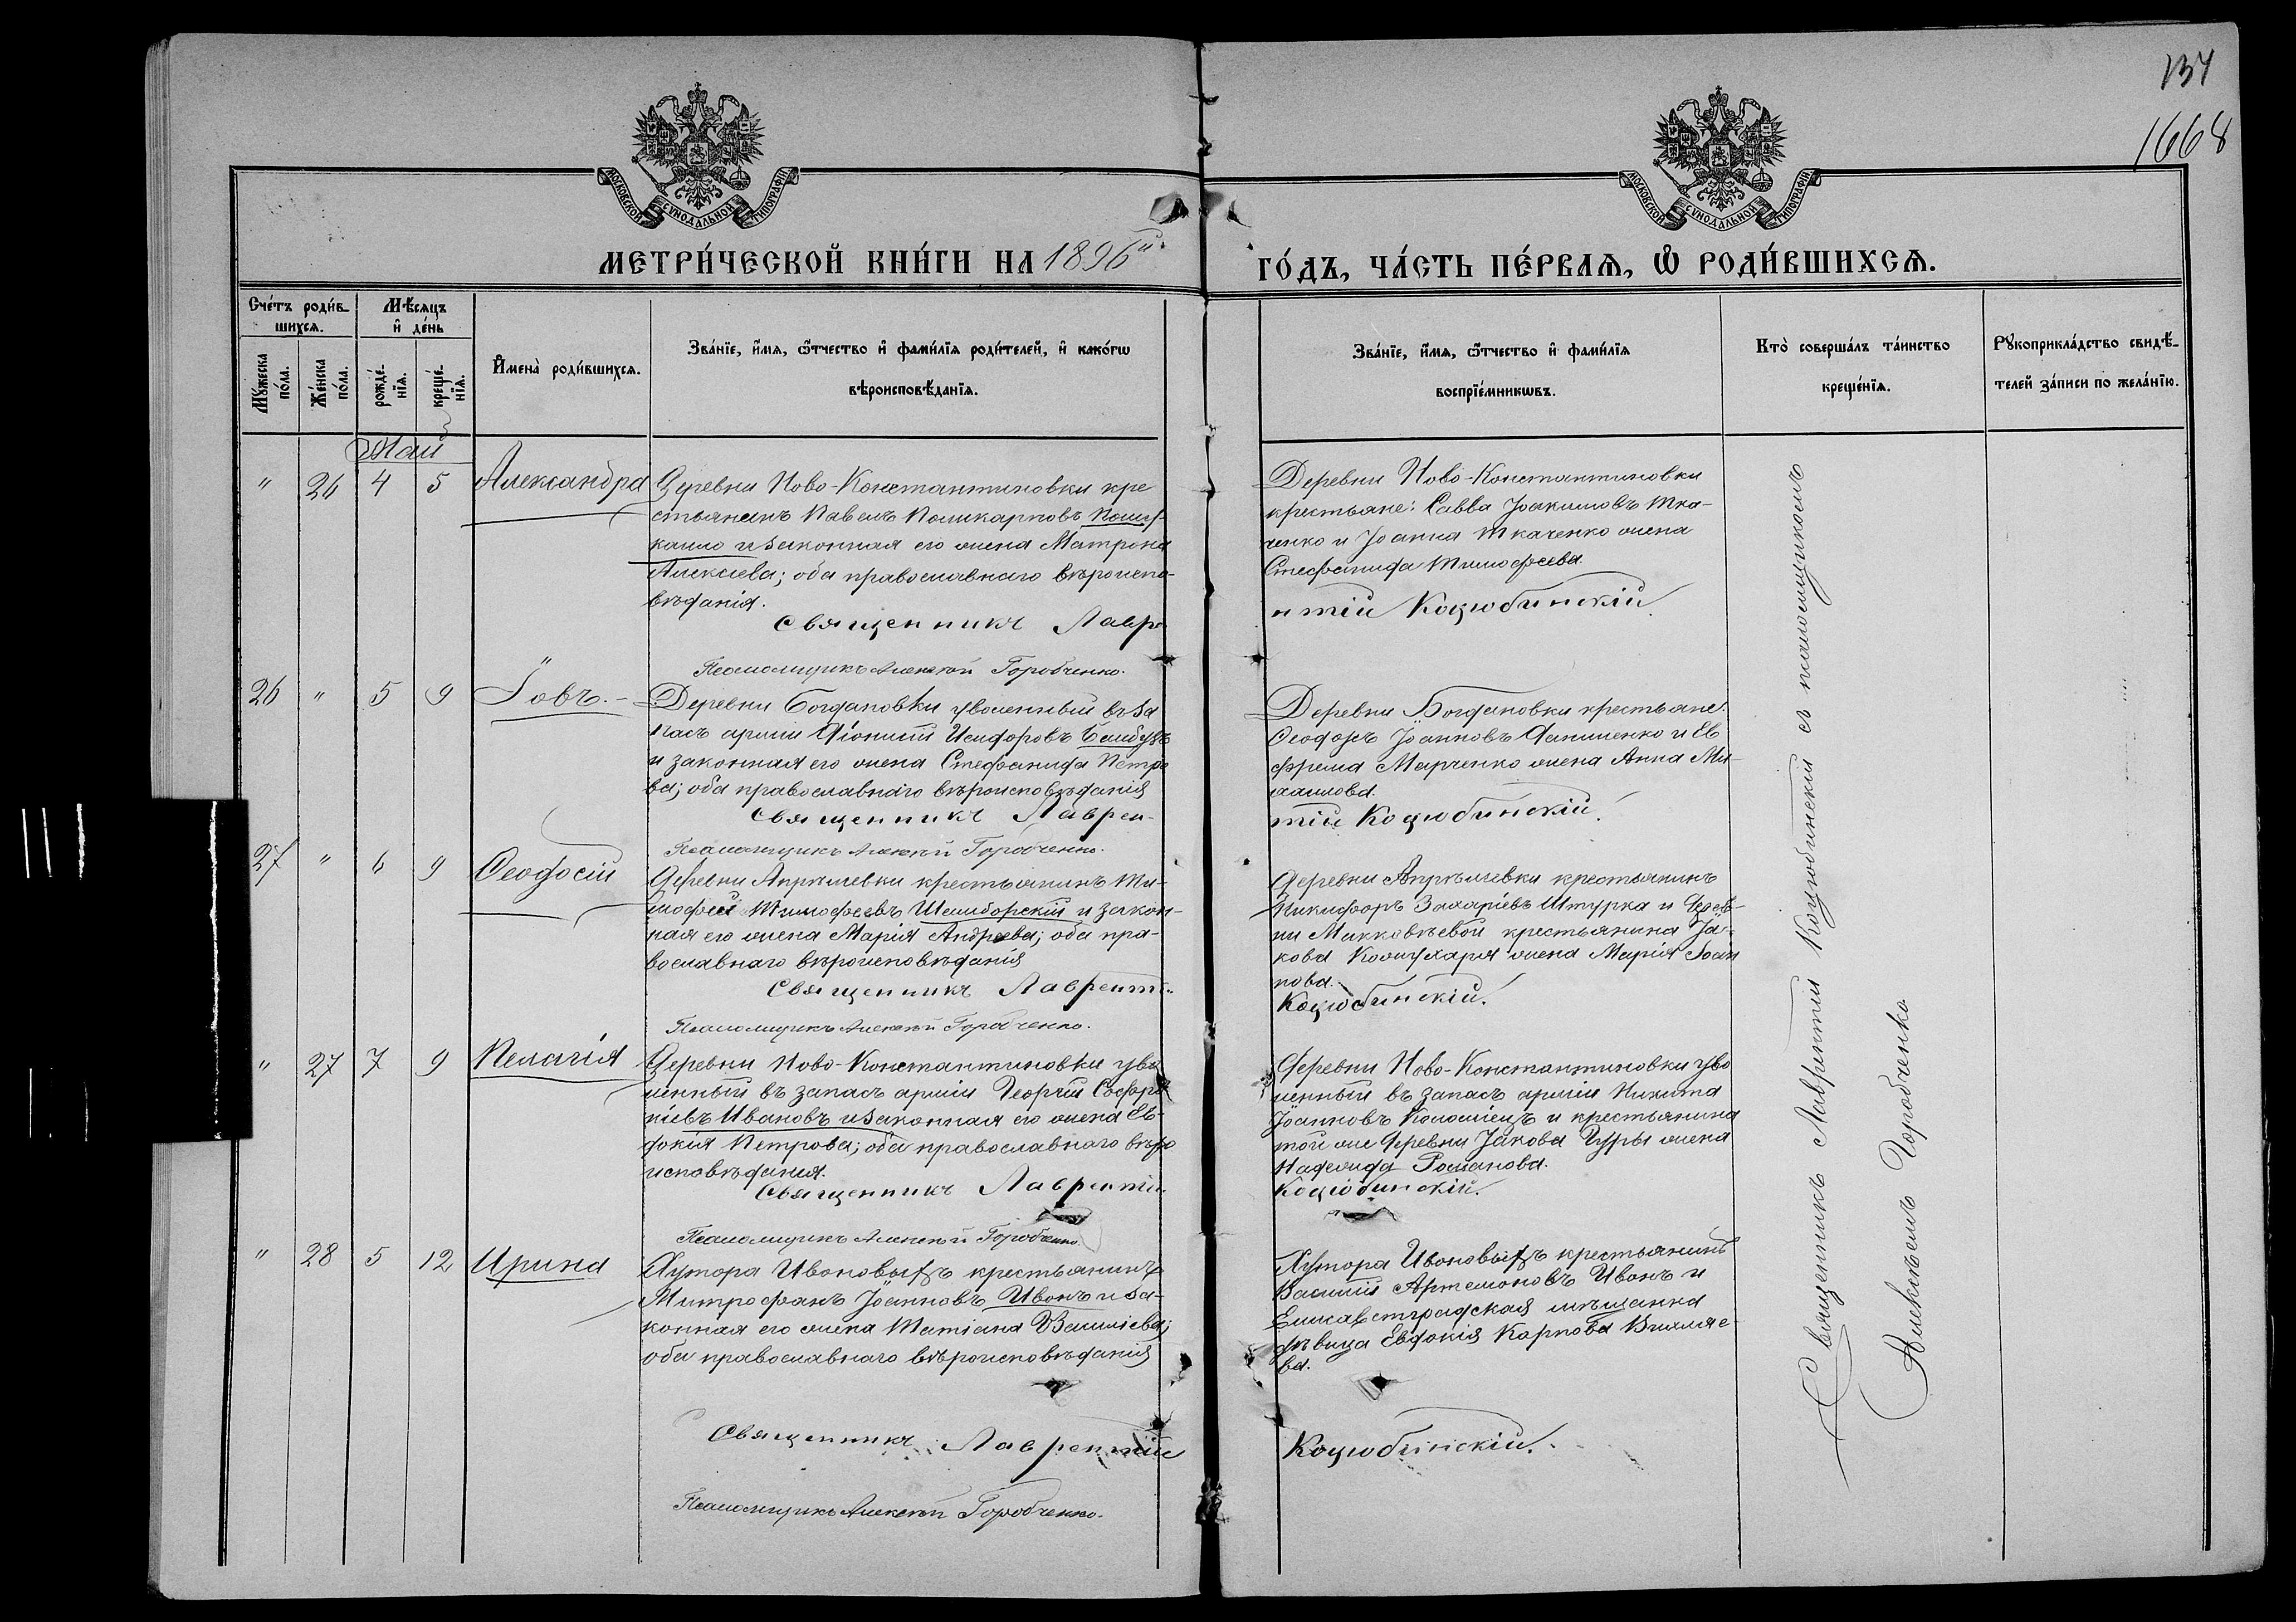 134
1668
МОСКОВСКОЙ СѴНОДАЛЬНОЙ ТИПОГРАФІИ
МОСКОВСКОЙ СѴНОДАЛЬНОЙ ТИПОГРАФІИ
МЕТРИ́ЧЕСКОЙ КНИ́ГИ НА 1896й
ГО́ДЪ, ЧА́СТЬ ПЕ́РВАѦ, Ѡ РОДИ́ВШИХСѦ.
Сче́тъ роди́в-
шихсѧ.
Мꙋ́жеска по́ла.
Же́нска по́ла.
Мѣ́сяцъ
и҆ де́нь
рожде́-
нїѧ.
креще́-
нїѧ.
И҆мена̀ роди́вшихсѧ.
Зва́нїе, и҆́мѧ, ѻ҆́тчество и҆ фами́лїѧ роди́телей, и҆ како́гѡ
вѣроисповѣ́данїѧ.
Зва́нїе, и҆́мѧ, ѻ҆́тчество и҆ фами́лїѧ
воспрїе́мникѡвъ.
Кто̀ соверша́лъ та́инство
креще́нїѧ.
Рꙋкоприкла́дство свидѣ́-
телей за́писи по жела́нїю.
Май
" 26 4 5 Александра
Деревни Ново-Константиновки кре
стьянинъ Павелъ Поликарповъ
и законная его жена Матрона
Алексіева; оба православнаго вѣроиспо-
вѣданія.
Священникъ Лавре
Псаломщикъ Алексѣй Горобченко.
Деревни Ново-Константиновки
крестьяне: Савва Іоакимовъ Тка-
ченко и Іоанна Ткаченко жена
Стефанида Тимофеева.
нтій Коцюбинскій.
26 " 5 9 Іовъ.
Деревни Богдановки уволенный въ за
пасъ арміи Діонисій Исидоровъ
и законная его жена Стефанида Петро
ва; оба православнаго вѣроисповѣданія
Священникъ Лаврен-
Псаломщикъ Алексѣй Горобченко.
Деревни Богдановки крестьяне:
Ѳеодоръ Іоанновъ Данименко и Ев
фрема Марченко жена Анна Ми-
хаилова.
тій Коцюбинскій.
27 " 6 9 Ѳеодосій
Деревни Апрѣлевки крестьянинъ Ти-
мофей Тимофеевъ Шамборскій и закон-
ная его жена Марія Андреева; оба пра-
вославнаго вѣроисповѣданія
Священникъ Лаврентій
Псаломщикъ Алексѣй Горобченко.
Деревни Апрѣлевки крестьянинъ
Никифоръ Захаріевъ Штурка и Дерев-
ни Маккавѣевой крестьянина Іа-
кова Кошухаря жена Марія Іоан
нова.
Коцюбинскій.
" 27 7 9 Пелагія
Деревни Ново-Константиновки уво
ленный въ запасъ арміи Георгій Софро
ніевъ Ивановъ и законная его жена Ев-
докія Петрова; оба православнаго вѣро
исповѣданія.
Священникъ Лаврентій
Псаломщикъ Алексѣй Горобченко.
Деревни Ново-Константиновки уво
ленный въ запасъ арміи Никита
Іоанновъ Коломіецъ и крестьянина
той же деревни Іакова Чуры жена
Надежда Романова.
Коцюбинскій.
" 28 5 12 Ирина
Хутора Ивоновыхъ крестьянинъ
Митрофанъ Іоанновъ Ивонъ и за-
конная его жена Татіана Василіева;
оба православнаго вѣроисповѣданія
Священникъ Лаврентій
Псаломщикъ Алексѣй Горобченко.
Хутора Ивоновыхъ крестьянинъ
Василій Артемоновъ Ивонъ и
Елисаветградская мѣщанка
дѣвица Евдокія Карпова
ва.
Коцюбинскій.
Священникъ Лаврентій Коцюбинскій съ псаломщикомъ
Алексѣемъ Горобченко